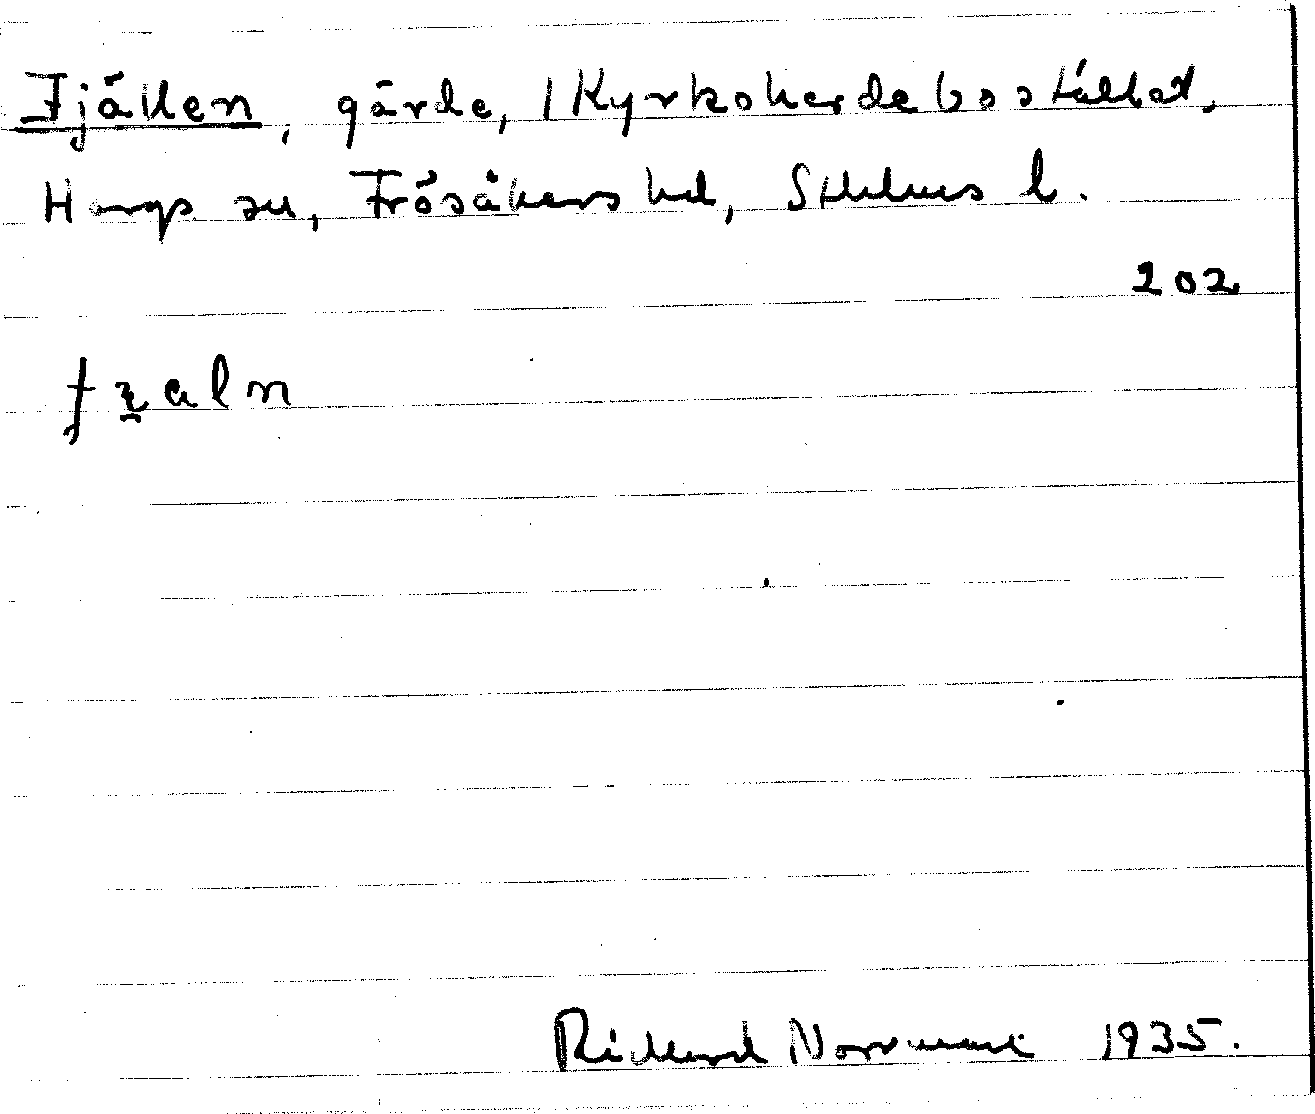 Fjällen, gärde, Kyrkoherdebostället,
Hargs sn, Frösåkers hd, Sthlms l.
202
fzaln
Richard Norrman 1935.